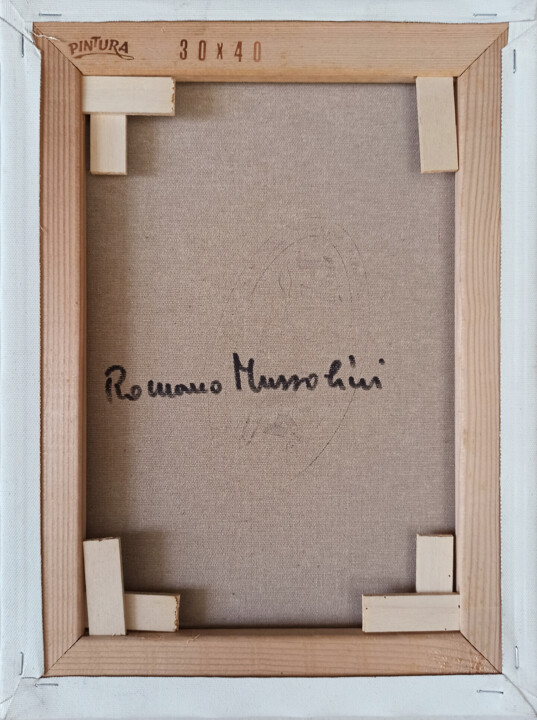 PINTURA 30 x 40
Romano Mussolini